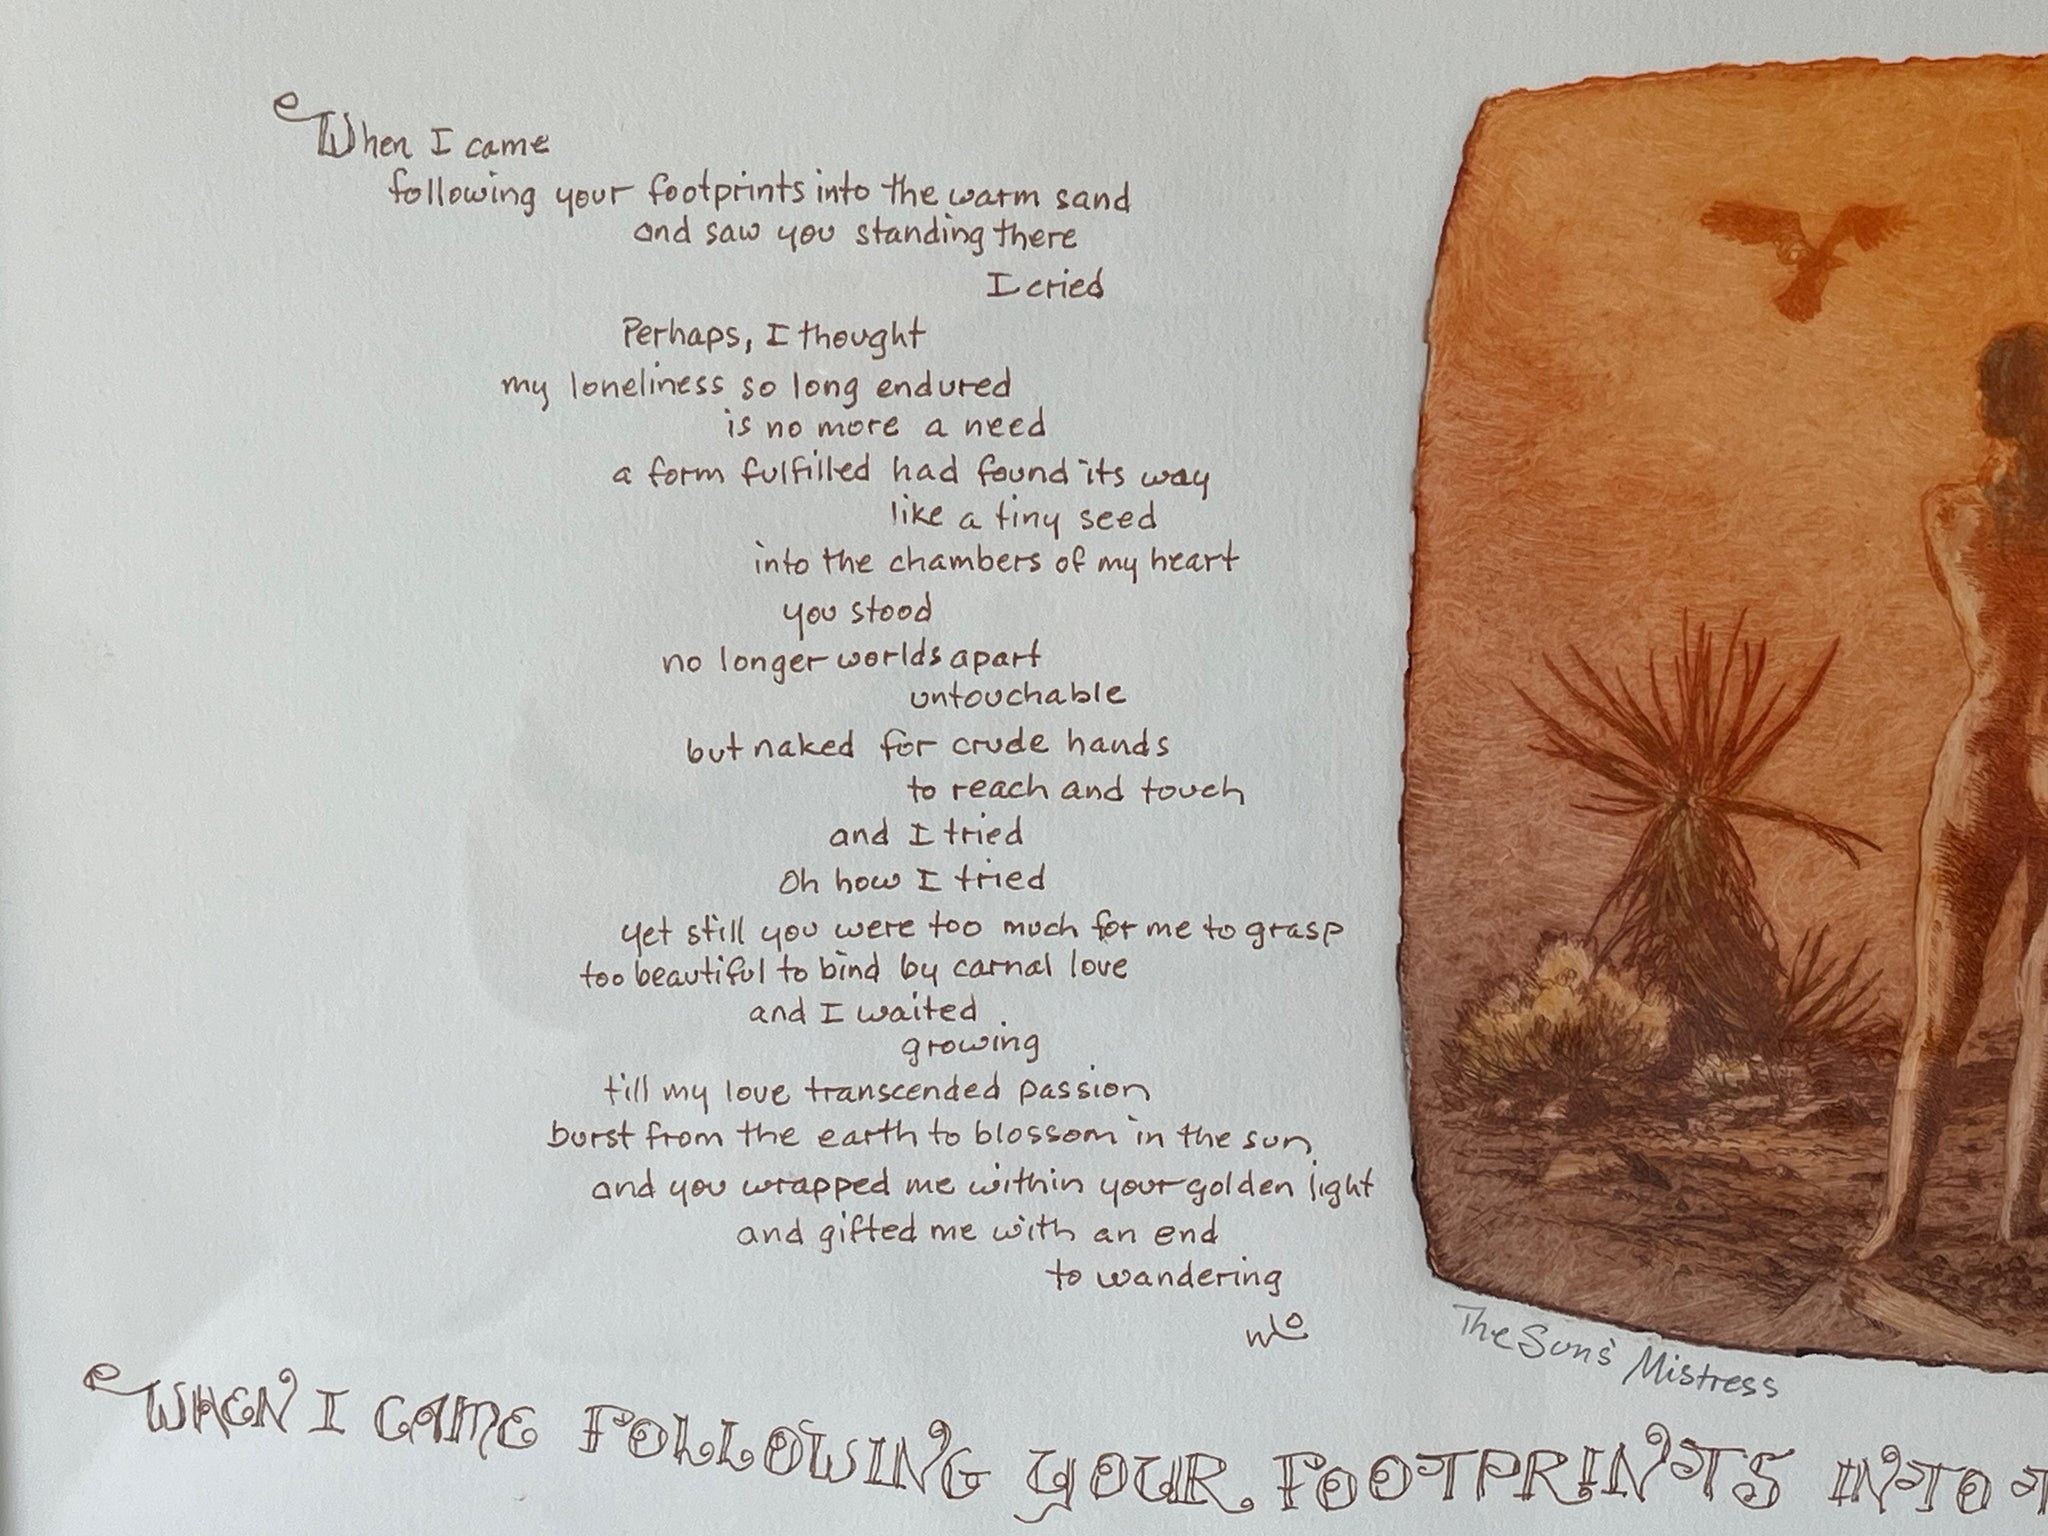 When I came
following your footprints into the warm sand
and saw you standing there
I cried
Perhaps, I thought
my loneliness so long endured
is no more a need
a form fulfilled had found its way
like a tiny seed
into the chambers of my heart
you stood
no longer worlds apart
untouchable
but naked for crude hands
to reach and touch
and I tried
Oh how I tried
yet still you were too much for me to grasp
too beautiful to bind by carnal love
and I waited
growing
till my love transcended passion
burst from the earth to blossom in the sun
and you wrapped me within your golden light
and gifted me with an end
to wandering
The Sun's Mistress
WHEN I CAME FOLLOWING YOUR FOOTPRINTS INTO